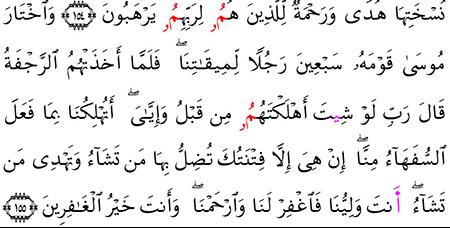 نُسْخَتِهَا هُدًى وَرَحْمَةٌ لِّلَّذِينَ هُمُۥ لِرَبِّهِمُۥ يَرْهَبُونَ ۝١٥٤ وَٱخْتَارَ
مُوسَىٰ قَوْمَهُۥ سَبْعِينَ رَجُلًا لِّمِيقَٰتِنَاۖ فَلَمَّا أَخَذَتْهُمُ ٱلرَّجْفَةُ
قَالَ رَبِّ لَوْ شِيتَ أَهْلَكْتَهُمُۥ مِن قَبْلُ وَإِيَّٰىَۖ أَتُهْلِكُنَا بِمَا فَعَلَ
ٱلسُّفَهَآءُ مِنَّآۖ إِنْ هِىَ إِلَّا فِتْنَتُكَ تُضِلُّ بِهَا مَن تَشَآءُ وَتَهْدِى مَن
تَشَآءُۖ أَنتَ وَلِيُّنَا فَٱغْفِرْ لَنَا وَٱرْحَمْنَاۖ وَأَنتَ خَيْرُ ٱلْغَٰفِرِينَ ۝١٥٥